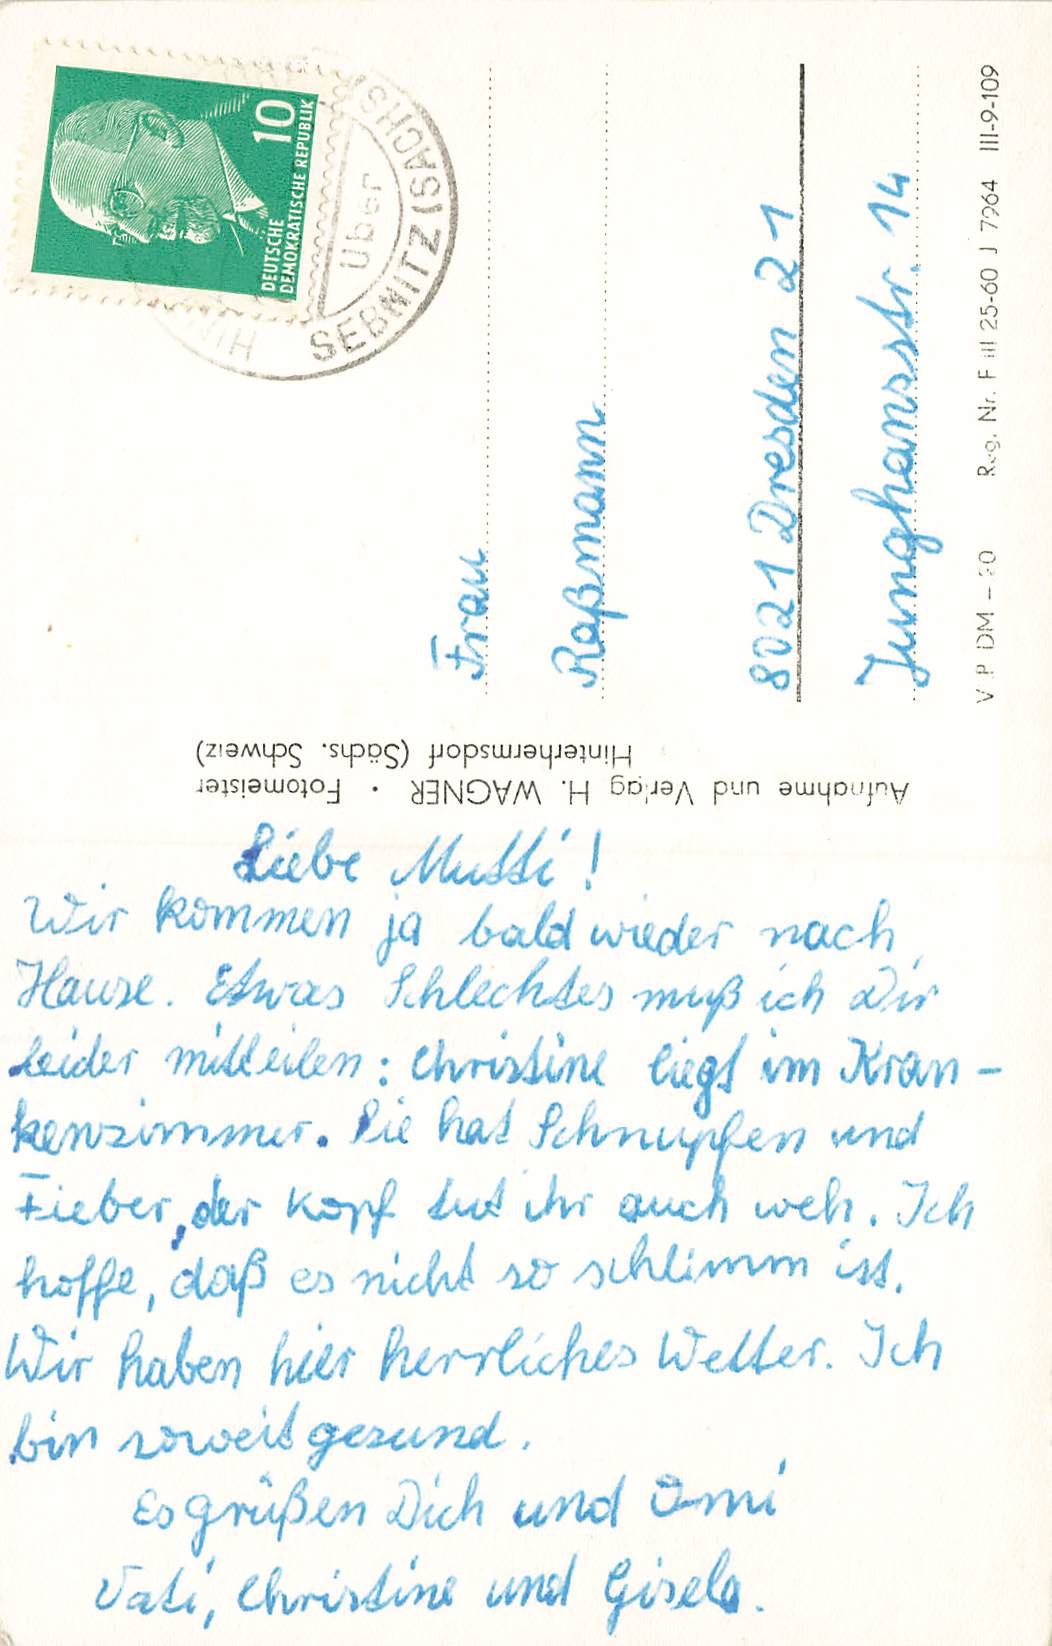 10
DEUTSCHE
DEMOKRATISCHE REPUBLIK
über
SEBNITZ (SACHS
Frau
Raßmann
8021 Dresden 21
Junghansstr. 14
V P DM – Reg. Nr. F III 25-60 J 7964 III-9-109
Aufnahme und Verlag H. WAGNER · Fotomeister
Hinterhermsdorf (Sächs. Schweiz)
Liebe Mutti!
Wir kommen ja bald wieder nach
Hause. Etwas Schlechtes muß ich Dir
leider mitteilen: Christine liegt im Kran-
kenzimmer. Sie hat Schnupfen und
Fieber, der Kopf tut ihr auch weh. Ich
hoffe, daß es nicht so schlimm ist.
Wir haben hier herrliches Wetter. Ich
bin soweit gesund.
Es grüßen Dich und Omi
Vati, Christine und Gisela.